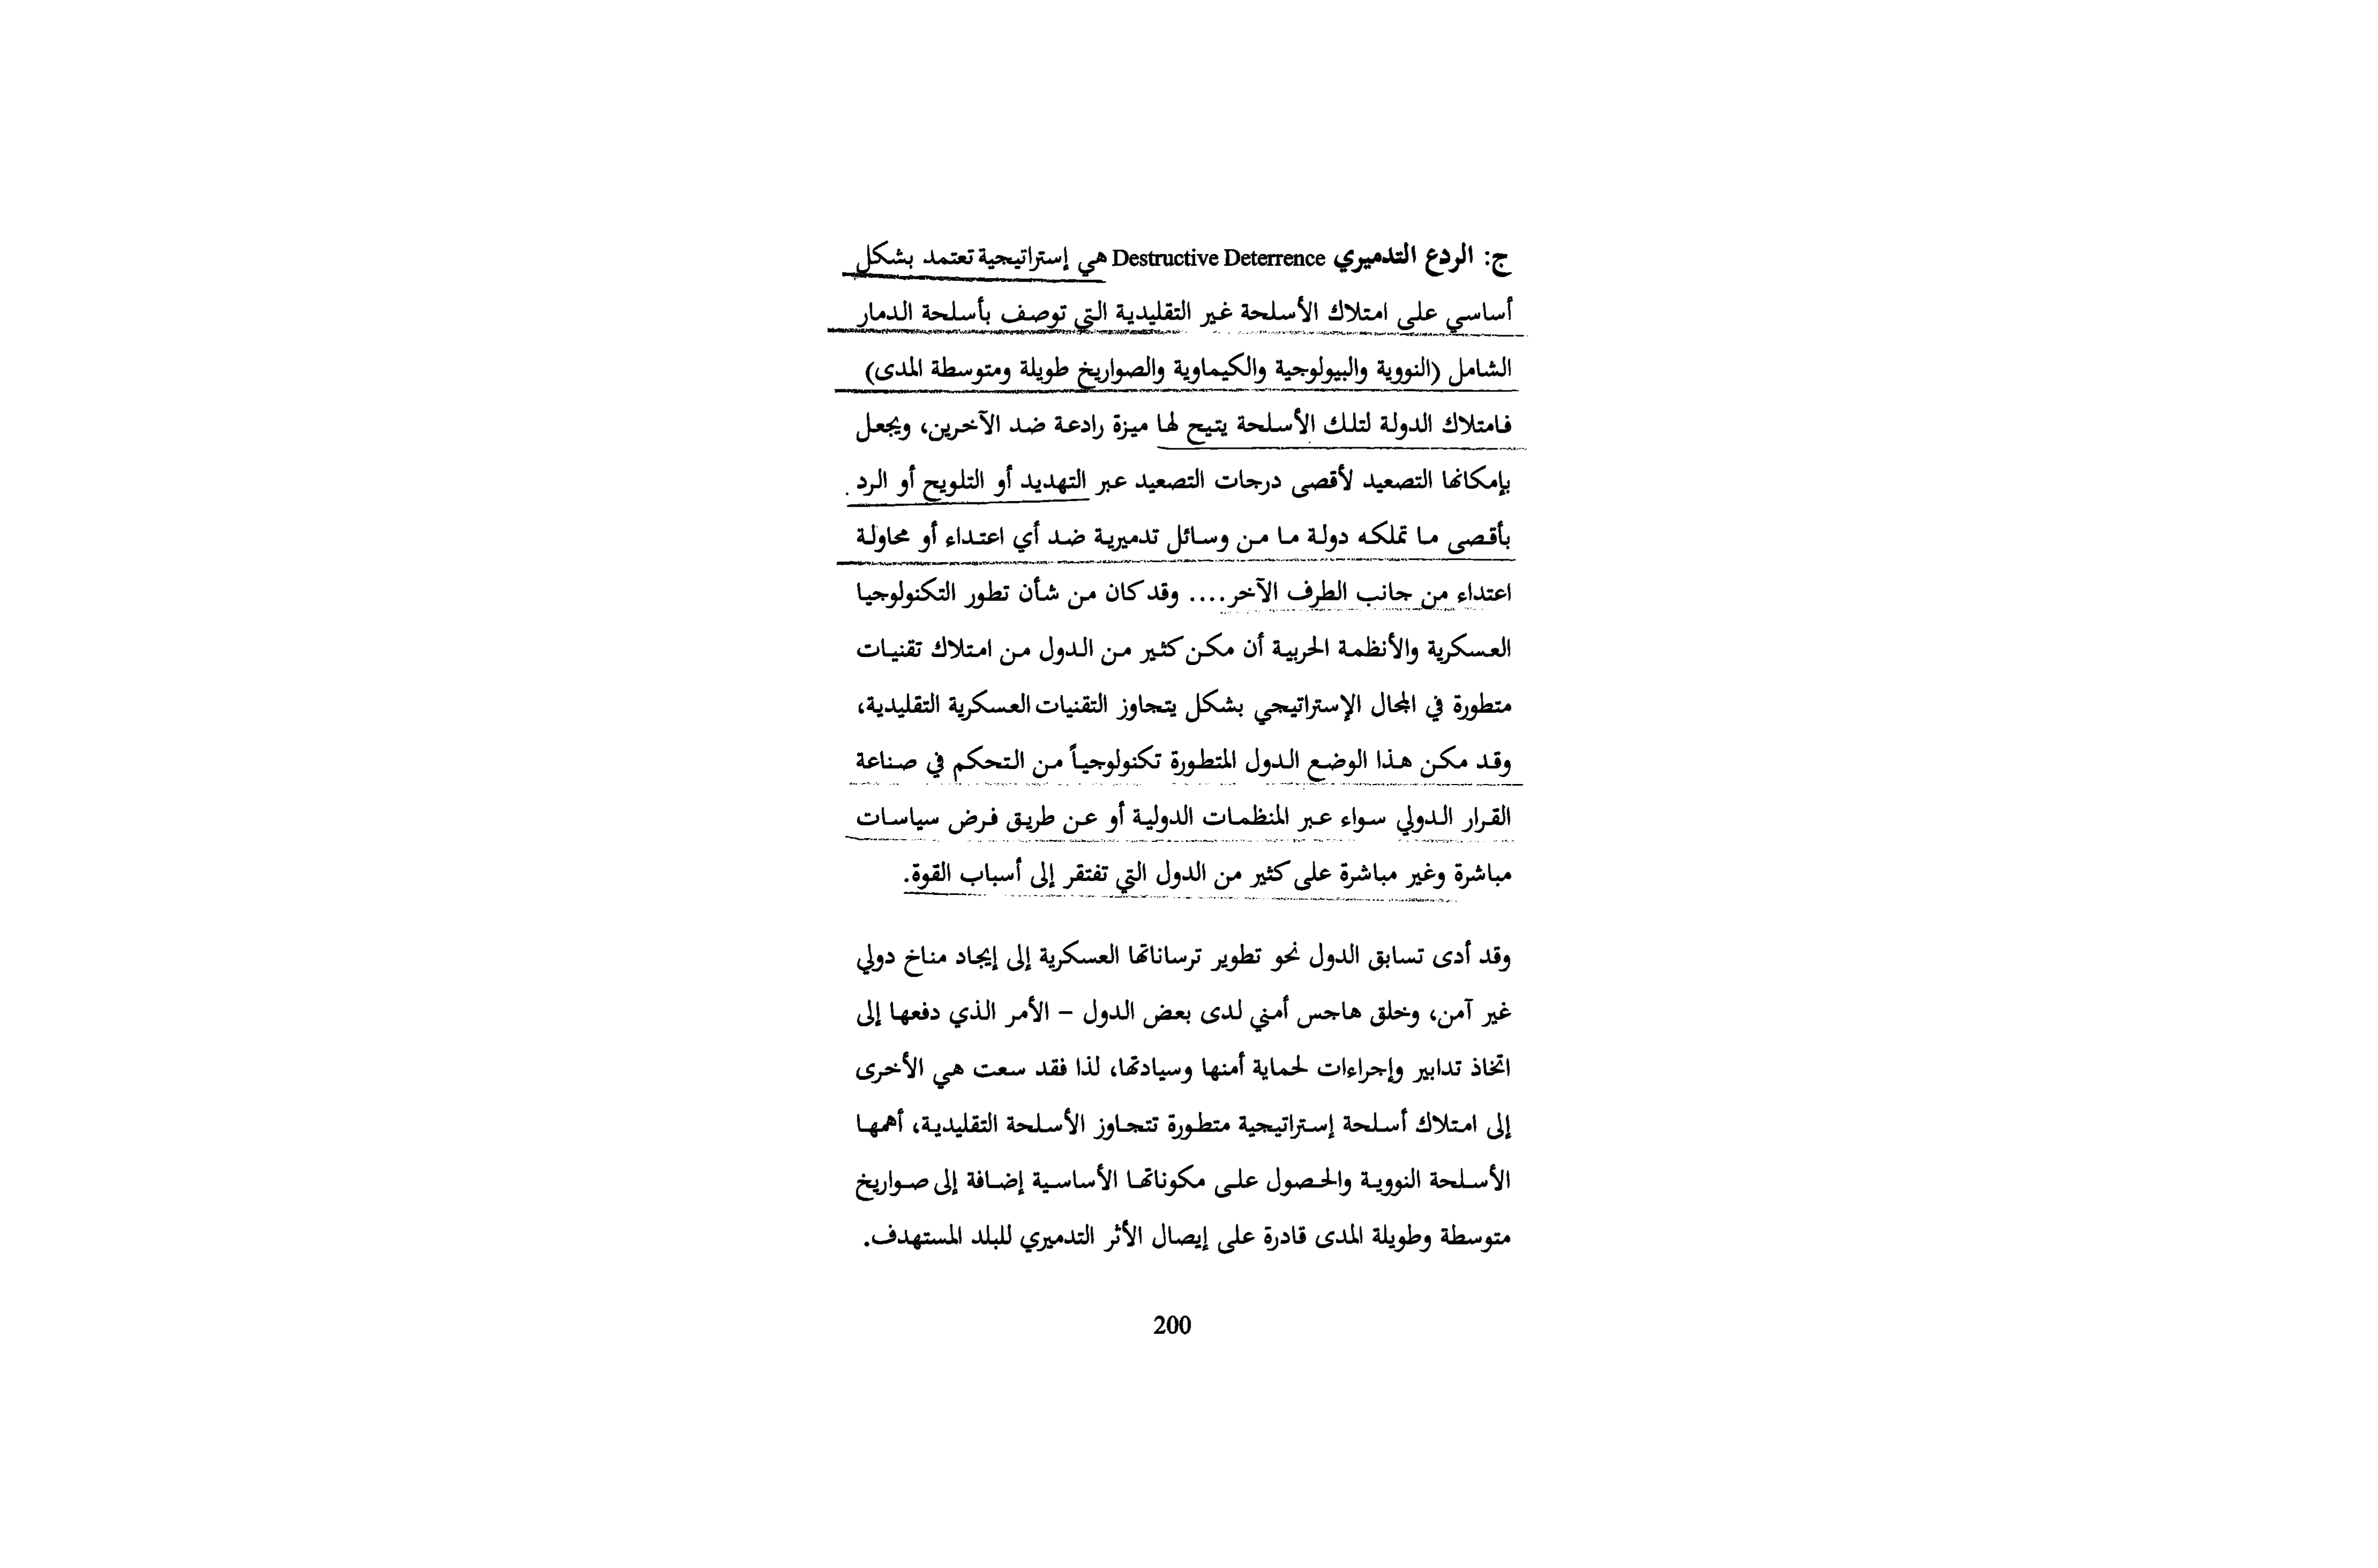 ج: الردع التدميري Destructive Deterrence هي إستراتيجية تعتمد بشكل
أساسي على امتلاك الأسلحة غير التقليدية التي توصف بأسلحة الدمار
الشامل (النووية والبيولوجية والكيماوية والصواريخ طويلة ومتوسطة المدى)
فامتلاك الدولة لتلك الأسلحة يتيح لها ميزة رادعة ضد الآخرين، ويجعل
بإمكانها التصعيد لأقصى درجات التصعيد عبر التهديد أو التلويح أو الرد
بأقصى ما تملكه دولة ما من وسائل تدميرية ضد أي اعتداء أو محاولة
اعتداء من جانب الطرف الآخر.... وقد كان من شأن تطور التكنولوجيا
العسكرية والأنظمة الحربية أن مكن كثير من الدول من امتلاك تقنيات
متطورة في المجال الإستراتيجي بشكل يتجاوز التقنيات العسكرية التقليدية،
وقد مكن هذا الوضع الدول المتطورة تكنولوجياً من التحكم في صناعة
القرار الدولي سواء عبر المنظمات الدولية أو عن طريق فرض سياسات
مباشرة وغير مباشرة على كثير من الدول التي تفتقر إلى أسباب القوة.
وقد أدى تسابق الدول نحو تطوير ترساناتها العسكرية إلى إيجاد مناخ دولي
غير آمن، وخلق هاجس أمني لدى بعض الدول – الأمر الذي دفعها إلى
اتخاذ تدابير وإجراءات لحماية أمنها وسيادتها، لذا فقد سعت هي الأخرى
إلى امتلاك أسلحة إستراتيجية متطورة تتجاوز الأسلحة التقليدية، أهمها
الأسلحة النووية والحصول على مكوناتها الأساسية إضافة إلى صواريخ
متوسطة وطويلة المدى قادرة على إيصال الأثر التدميري للبلد المستهدف.
200